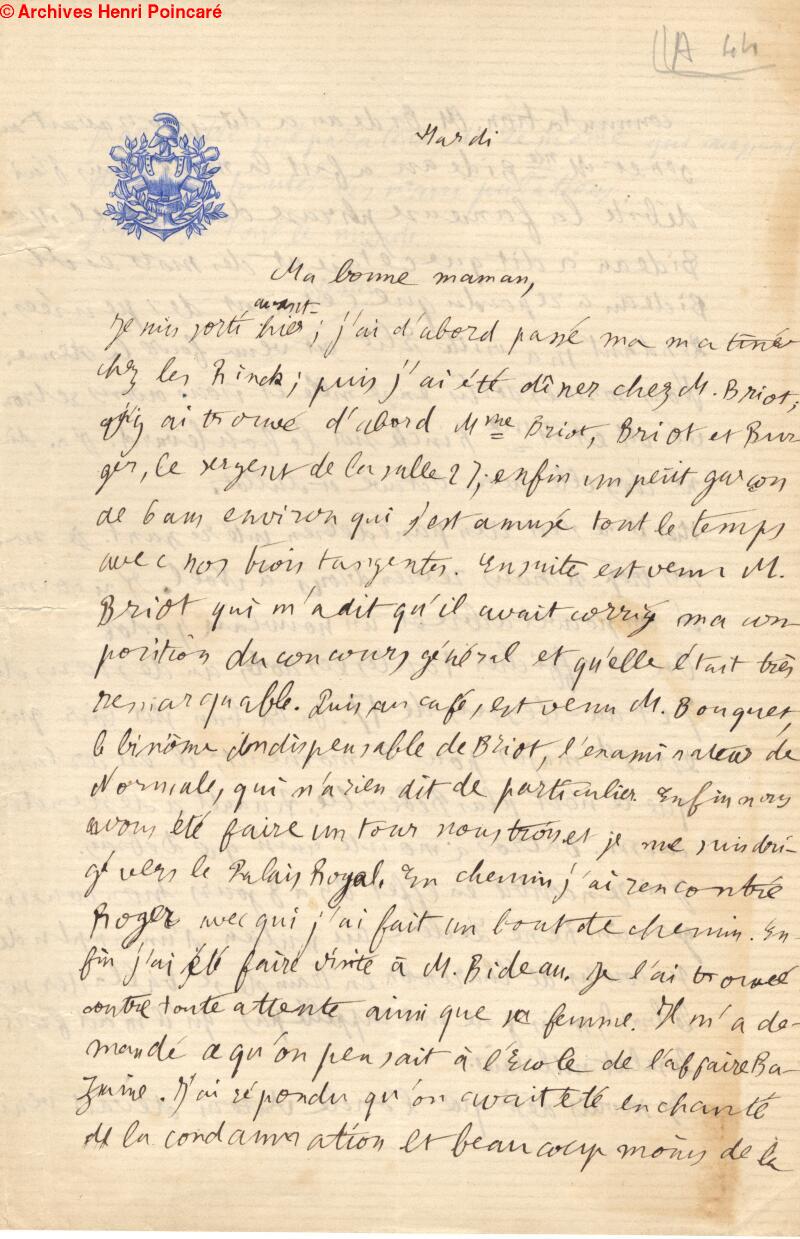 © Archives Henri Poincaré
A 44
Mardi
Ma bonne maman,
avant-
Je suis sorti hier; j'ai d'abord passé ma matinée
chez les Rinck; puis j'ai été dîner chez M. Briot;
j'y ai trouvé d'abord Mme Briot, Briot et Bur
ger, le sergent de la salle 27; enfin un petit garçon
de 6 ans environ qui s'est amusé tout le temps
avec nos trois tangentes. Ensuite est venu M.
Briot qui m'a dit qu'il avait corrigé ma com
position du concours général et qu'elle était très
remarquable. Puis au café, est venu M. Bouquet,
le binôme indispensable de Briot, l'examinateur de
Normale, qui n'a rien dit de particulier. Enfin nous
avons été faire un tour nous trois et je me suis diri-
gé vers le Palais Royal. En chemin j'ai rencontré
Roger avec qui j'ai fait un bout de chemin. En-
fin j'ai été faire visite à M. Bideau. Je l'ai trouvé
contre toute attente ainsi que sa femme. Il m'a de-
mandé ce qu'on pensait à l'Ecole de l'affaire Ba-
zaine. J'ai répondu qu'on avait été enchanté
de la condamnation et beaucoup moins de la